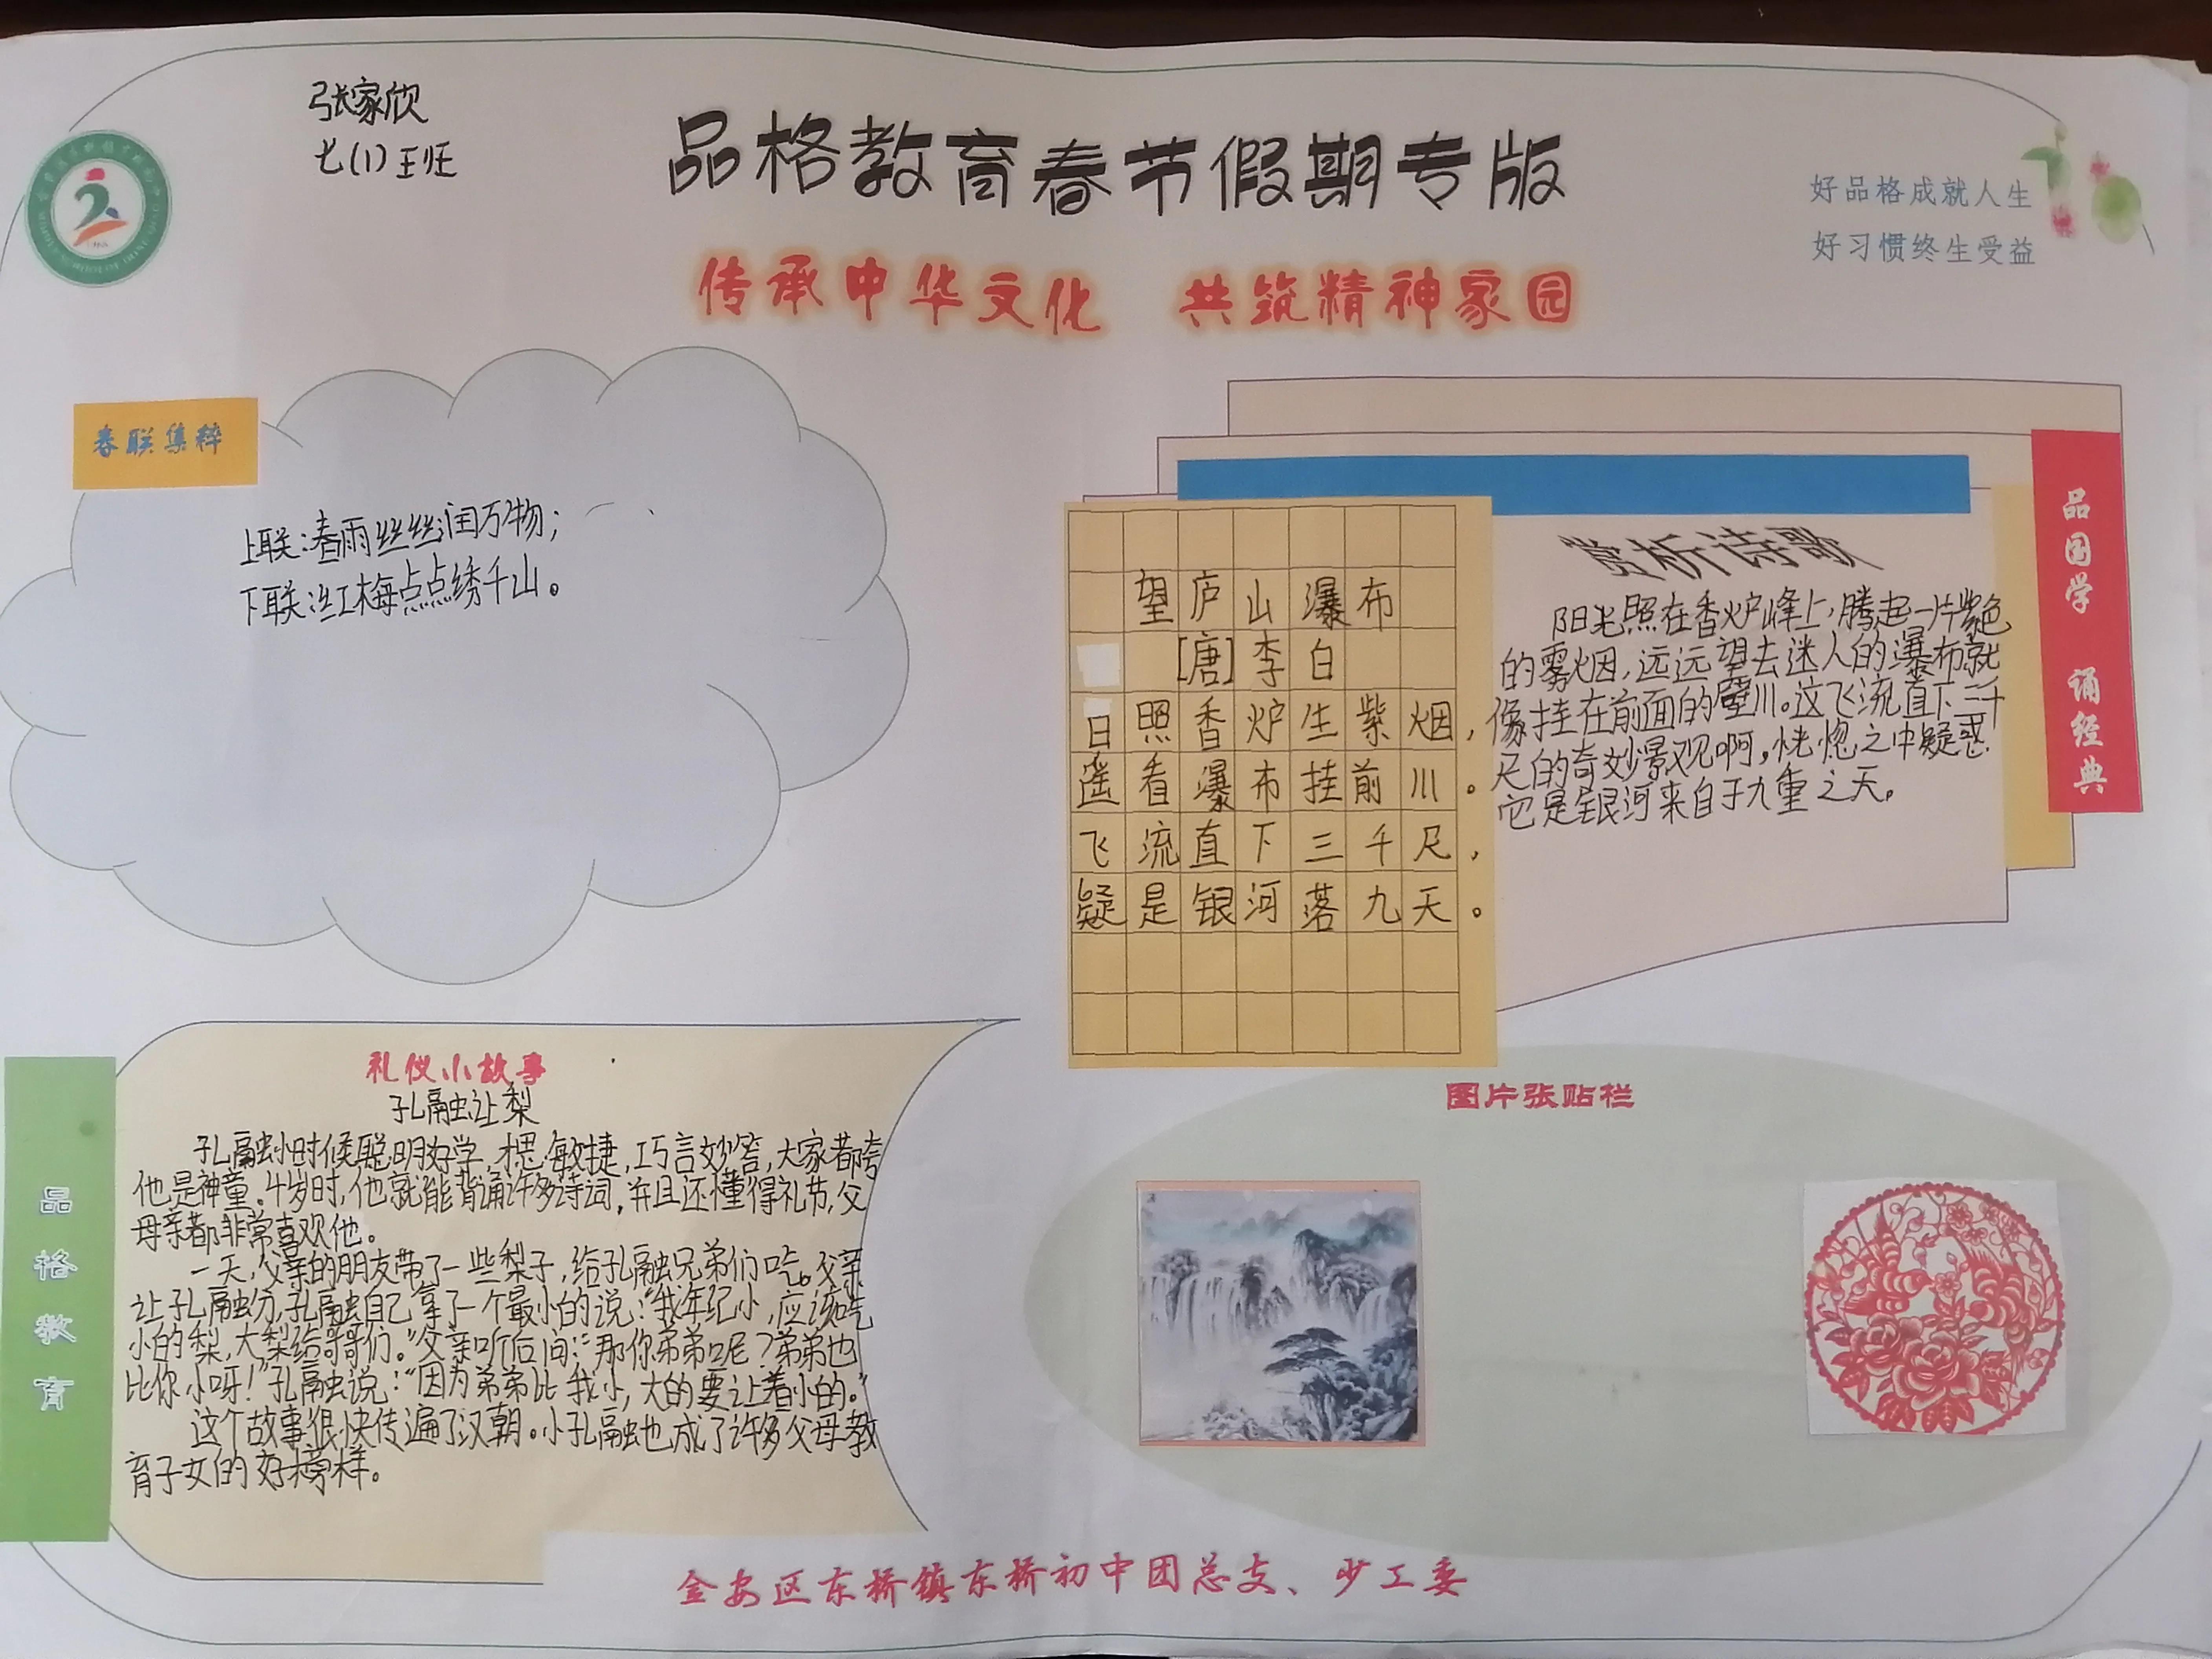 张家欣
七(1)班
品格教育春节假期专版
好品格成就人生
好习惯终生受益
传承中华文化 共筑精神家园
春联集粹
上联:春雨丝丝润万物;
下联:红梅点点绣千山。
品国学 诵经典
望庐山瀑布
[唐]李白
日照香炉生紫烟,
遥看瀑布挂前川。
飞流直下三千尺,
疑是银河落九天。
赏析诗歌
阳光照在香炉峰上,腾起一片紫色
的雾烟,远远望去迷人的瀑布就
像挂在前面的壁川。这飞流直下三千
尺的奇妙景观啊,恍惚之中疑惑
它是银河来自于九重之天。
品格教育
礼仪小故事
孔融让梨
孔融小时候聪明好学,才思敏捷,巧言妙答,大家都夸
他是神童。4岁时,他就能背诵许多诗词,并且还懂得礼节,父
母亲都非常喜欢他。
一天,父亲的朋友带了一些梨子,给孔融兄弟们吃。父亲
让孔融分,孔融自己拿了一个最小的说:“我年纪小,应该吃
小的梨,大梨给哥哥们。”父亲听后问:“那你弟弟呢?弟弟也
比你小呀!”孔融说:“因为弟弟比我小,大的要让着小的。”
这个故事很快传遍了汉朝。小孔融也成了许多父母教
育子女的好榜样。
图片张贴栏
金安区东桥镇东桥初中团总支、少工委